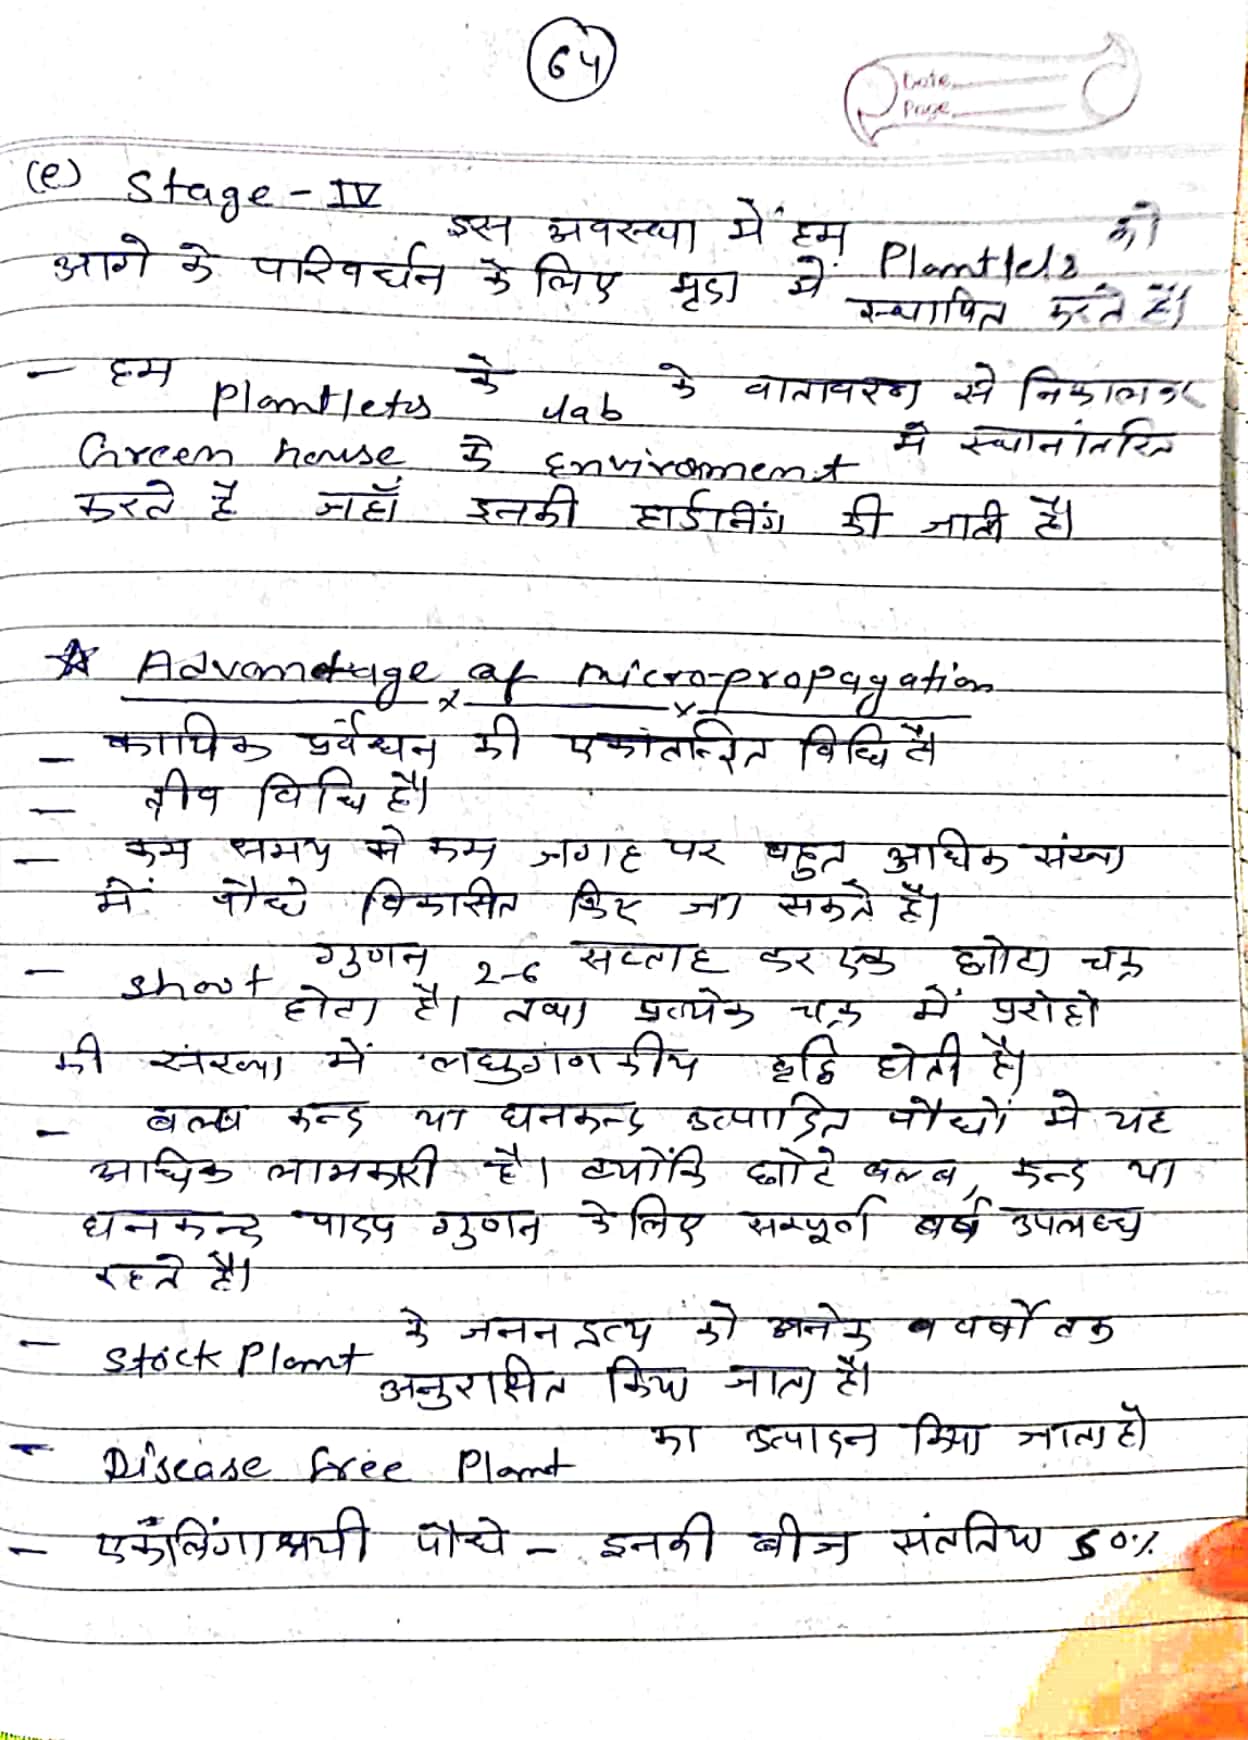 64
Date
Page
(e) Stage - IV
इस अवस्था में हम Plantlets को
आगे के परिवर्धन के लिए मृदा में स्थापित करते हैं।
- हम Plantlets के Lab के वातावरण से निकालकर
Green house के Enviroment में स्थानांतरित
करते है जहाँ इनकी हार्डनिंग की जाती है।
☆ Advantage of micro-propagation
- कायिक प्रर्वधन की एकांतन्रित विधि है।
- तीव्र विधि है।
- कम समय मे कम जगह पर बहुत अधिक संख्या
में पौधे विकासित किए जा सकते है।
- Shoot गुणन 2-6 सप्ताह कर एक छोटा चक्र
होता है। तथा प्रत्येक चक्र में प्ररोहो
की संख्या में लघुगणकीय वृद्धि होती है।
- बल्ब कन्द या घनकन्द उत्पादित पौधों मे यह
अधिक लाभकारी है। क्योंकि छोटे बल्ब, कन्द या
घनकन्द पादप गुणन के लिए सम्पूर्ण बर्ष उपलब्ध
रहते है।
- Stock Plant के जनन द्रव्य को अनेक वर्षो तक
अनुरक्षित किया जाता है।
- Disease free Plant का उत्पादन किया जाता है।
- एकलिंगाश्रयी पौधे - इनकी बीज संततिया 50%